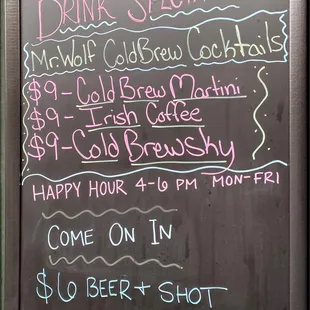 DRINK SPECIALS
Mr. Wolf Cold Brew Cocktails
$9 - Cold Brew Martini
$9 - Irish Coffee
$9 - Cold Brewsky
HAPPY HOUR 4-6 PM MON-FRI
COME ON IN
$6 BEER + SHOT